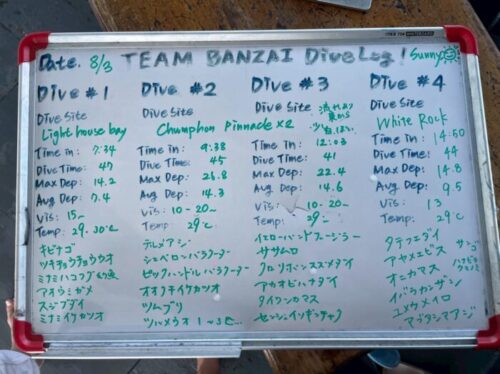 Date. 8/3 TEAM BANZAI Dive Log! Sunny
Dive #1
Dive Site
Light house bay
Time in: 7:34
Dive Time: 47
Max Dep: 14.2
Avg Dep: 7.4
Vis: 15~
Temp: 29.30℃
キビナゴ
ツキチョウチョウウオ
ミナミハコフグ
アオウミガメ
スジブダイ
ミナミイケカツオ
Dive #2
Dive Site
Chumphon Pinnacle x2
Time in: 9:38
Dive Time: 45
Max Dep: 26.8
Avg Dep: 14.3
Vis: 10-20~
Temp: 29℃
テルメアジ
シェベロンバラクーダー
ピックハンドルバラクーダー
オオクチイケカツオ
ツムブリ
ツバメウオ 1~3匹...
Dive #3
Dive Site 流れあり
Time in: 12:03
Dive Time: 41
Max Dep: 22.4
Avg Dep: 14.6
Vis: 10-20~
Temp: 29℃
イエローバンドフュージラー
ササムロ
クロリボンスズメダイ
アカオビハナダイ
タイワンカマス
センジュイソギンチャク
Dive #4
Dive Site
White Rock
Time in: 14:50
Dive Time: 44
Max Dep: 14.8
Avg Dep: 9.5
Vis: 13
Temp: 29℃
タテフエダイ
アヤメエビス サンゴ
オニカマス
イバラカンザシ
ユメウメイロ